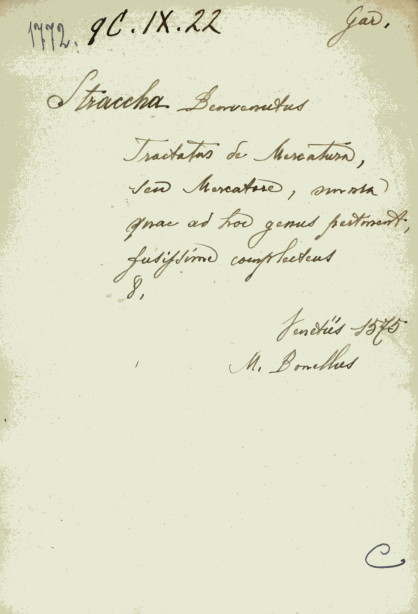 1772. qC.IX.22 Gar.
Straccha Benvenutus
Tractatus de Mercatura,
seu Mercatore, omnia
quae ad hoc genus pertinent,
fusissime complectens
8.
Venetiis 1575
M. Bonellus
C